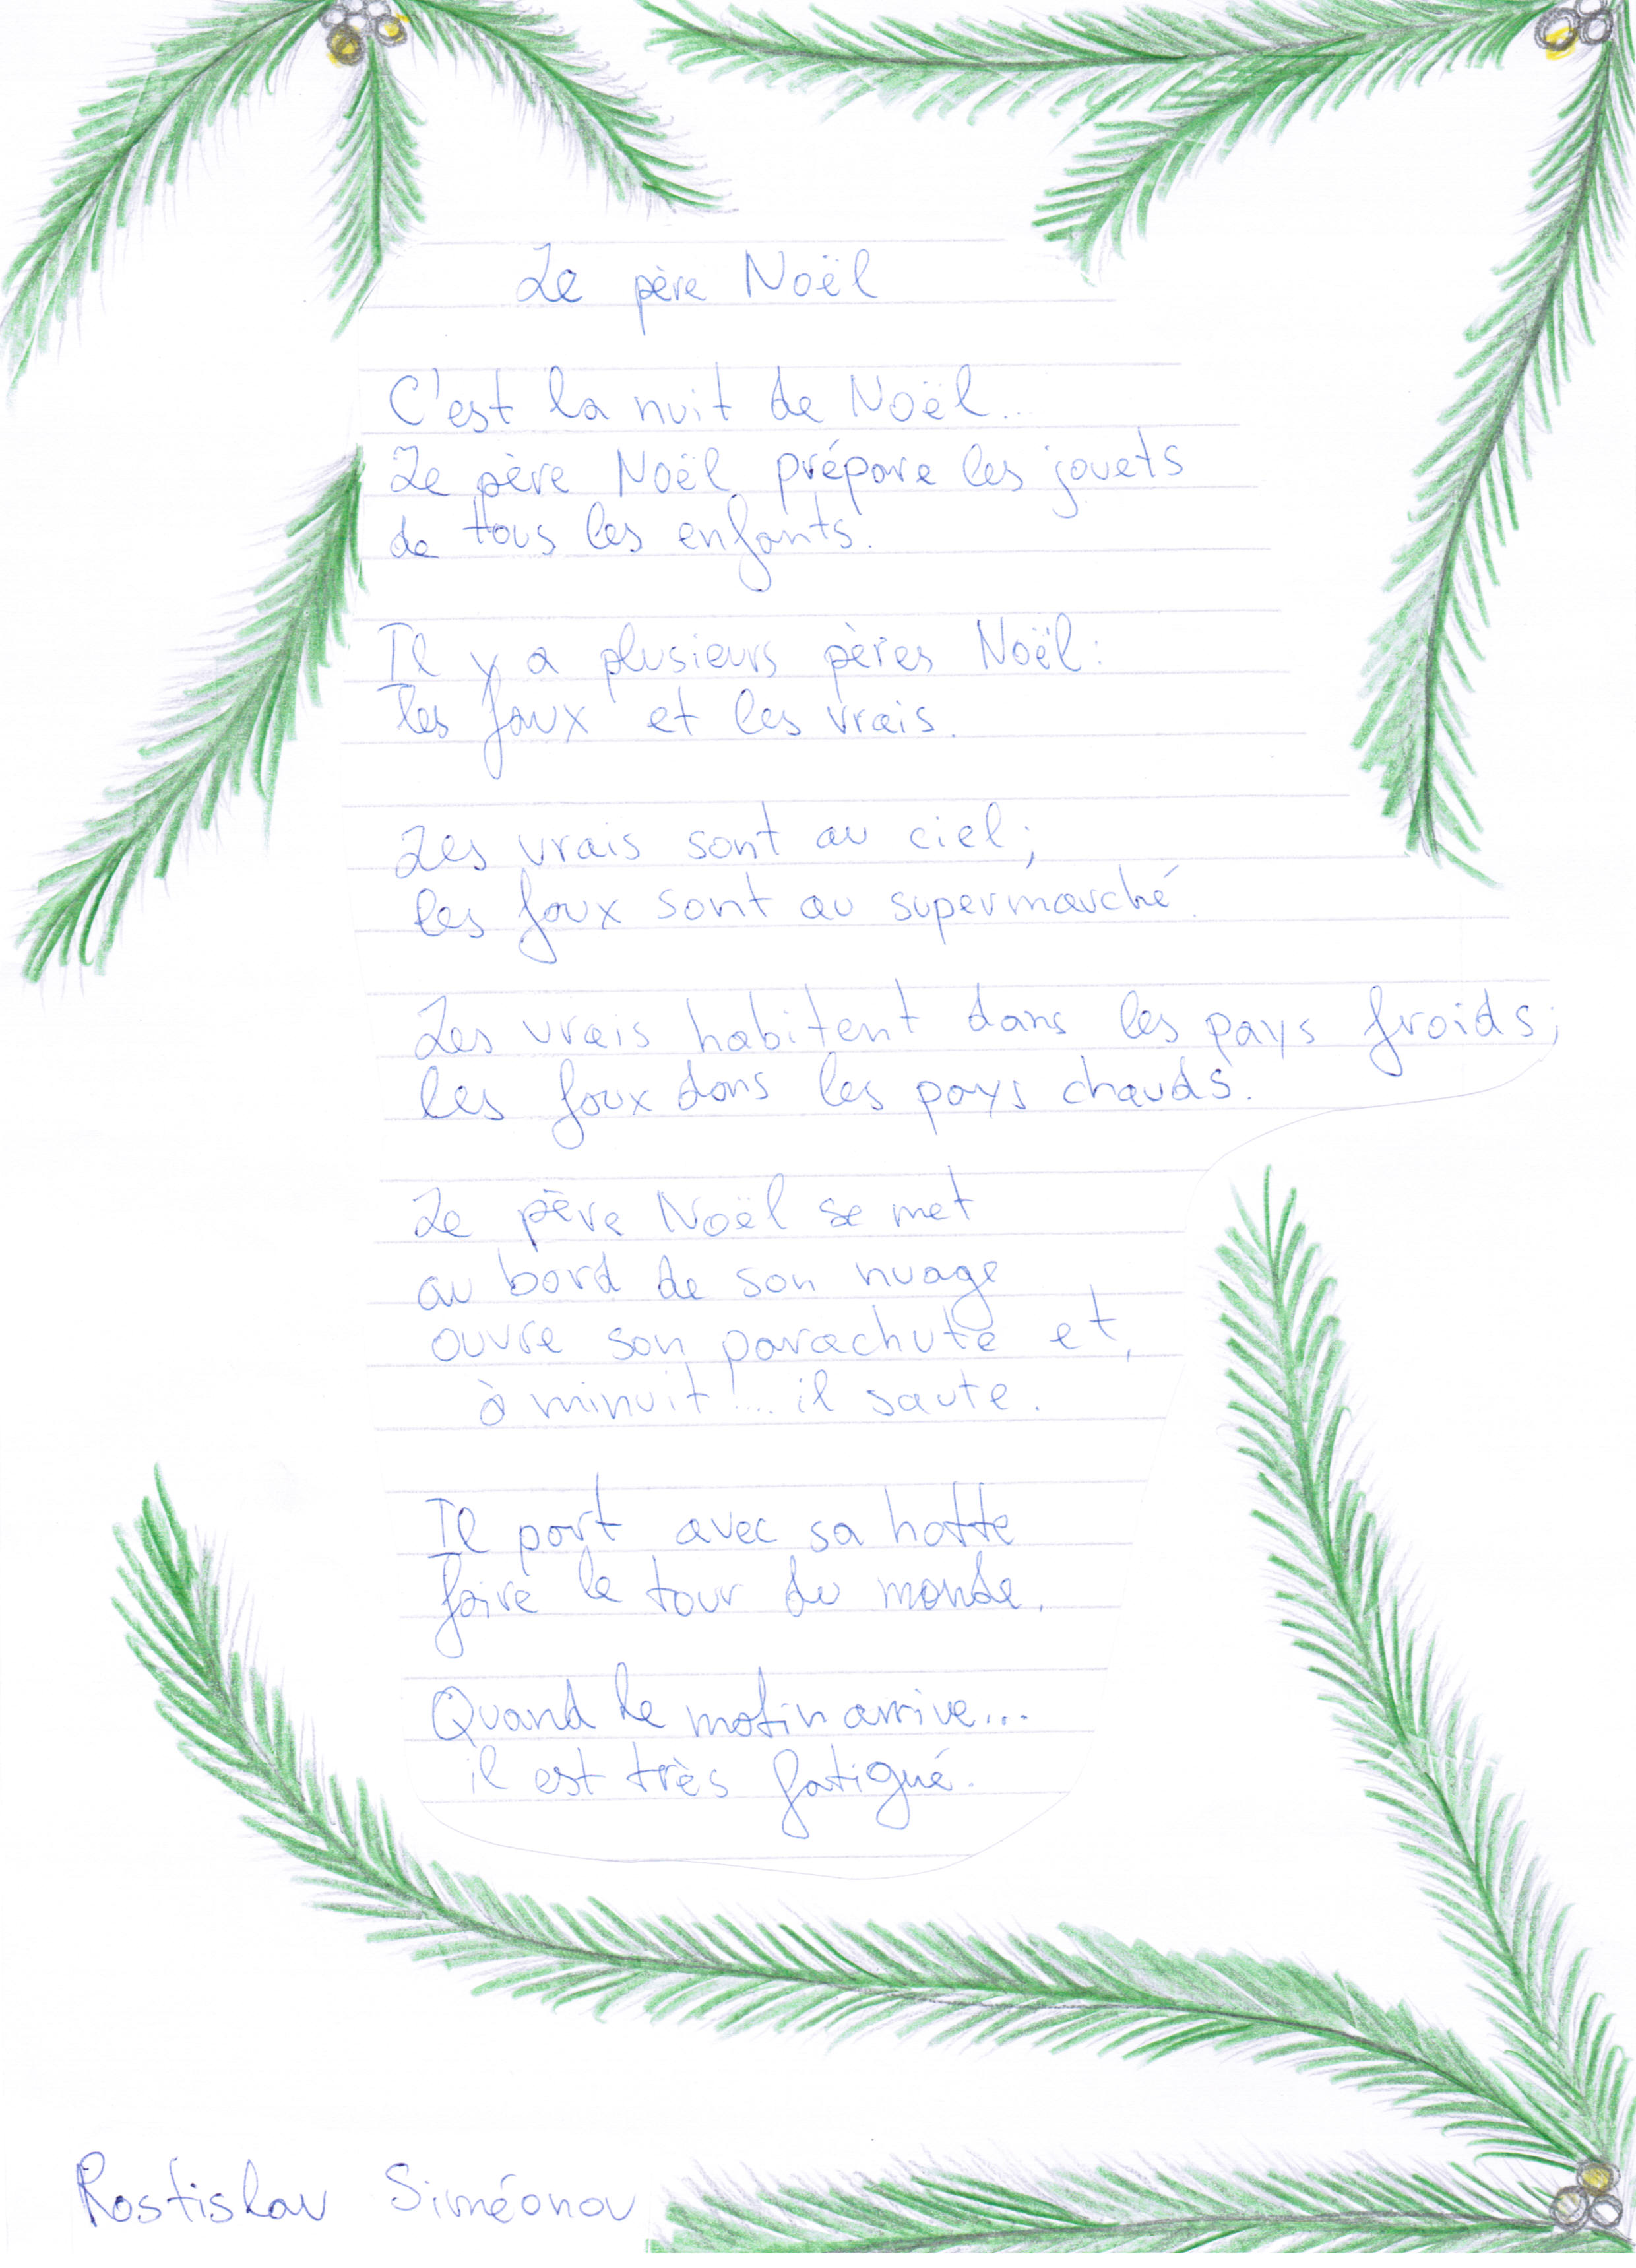 Le père Noël
C'est la nuit de Noël...
Le père Noël prépare les jouets
de tous les enfants.
Il y a plusieurs pères Noël:
les faux et les vrais.
Les vrais sont au ciel;
les faux sont au supermarché.
Les vrais habitent dans les pays froids;
les faux dans les pays chauds.
Le père Noël se met
au bord de son nuage
ouvre son parachute et,
à minuit!... il saute.
Il part avec sa hotte
faire le tour du monde.
Quand le matin arrive...
il est très fatigué.
Rostislav Siméonov